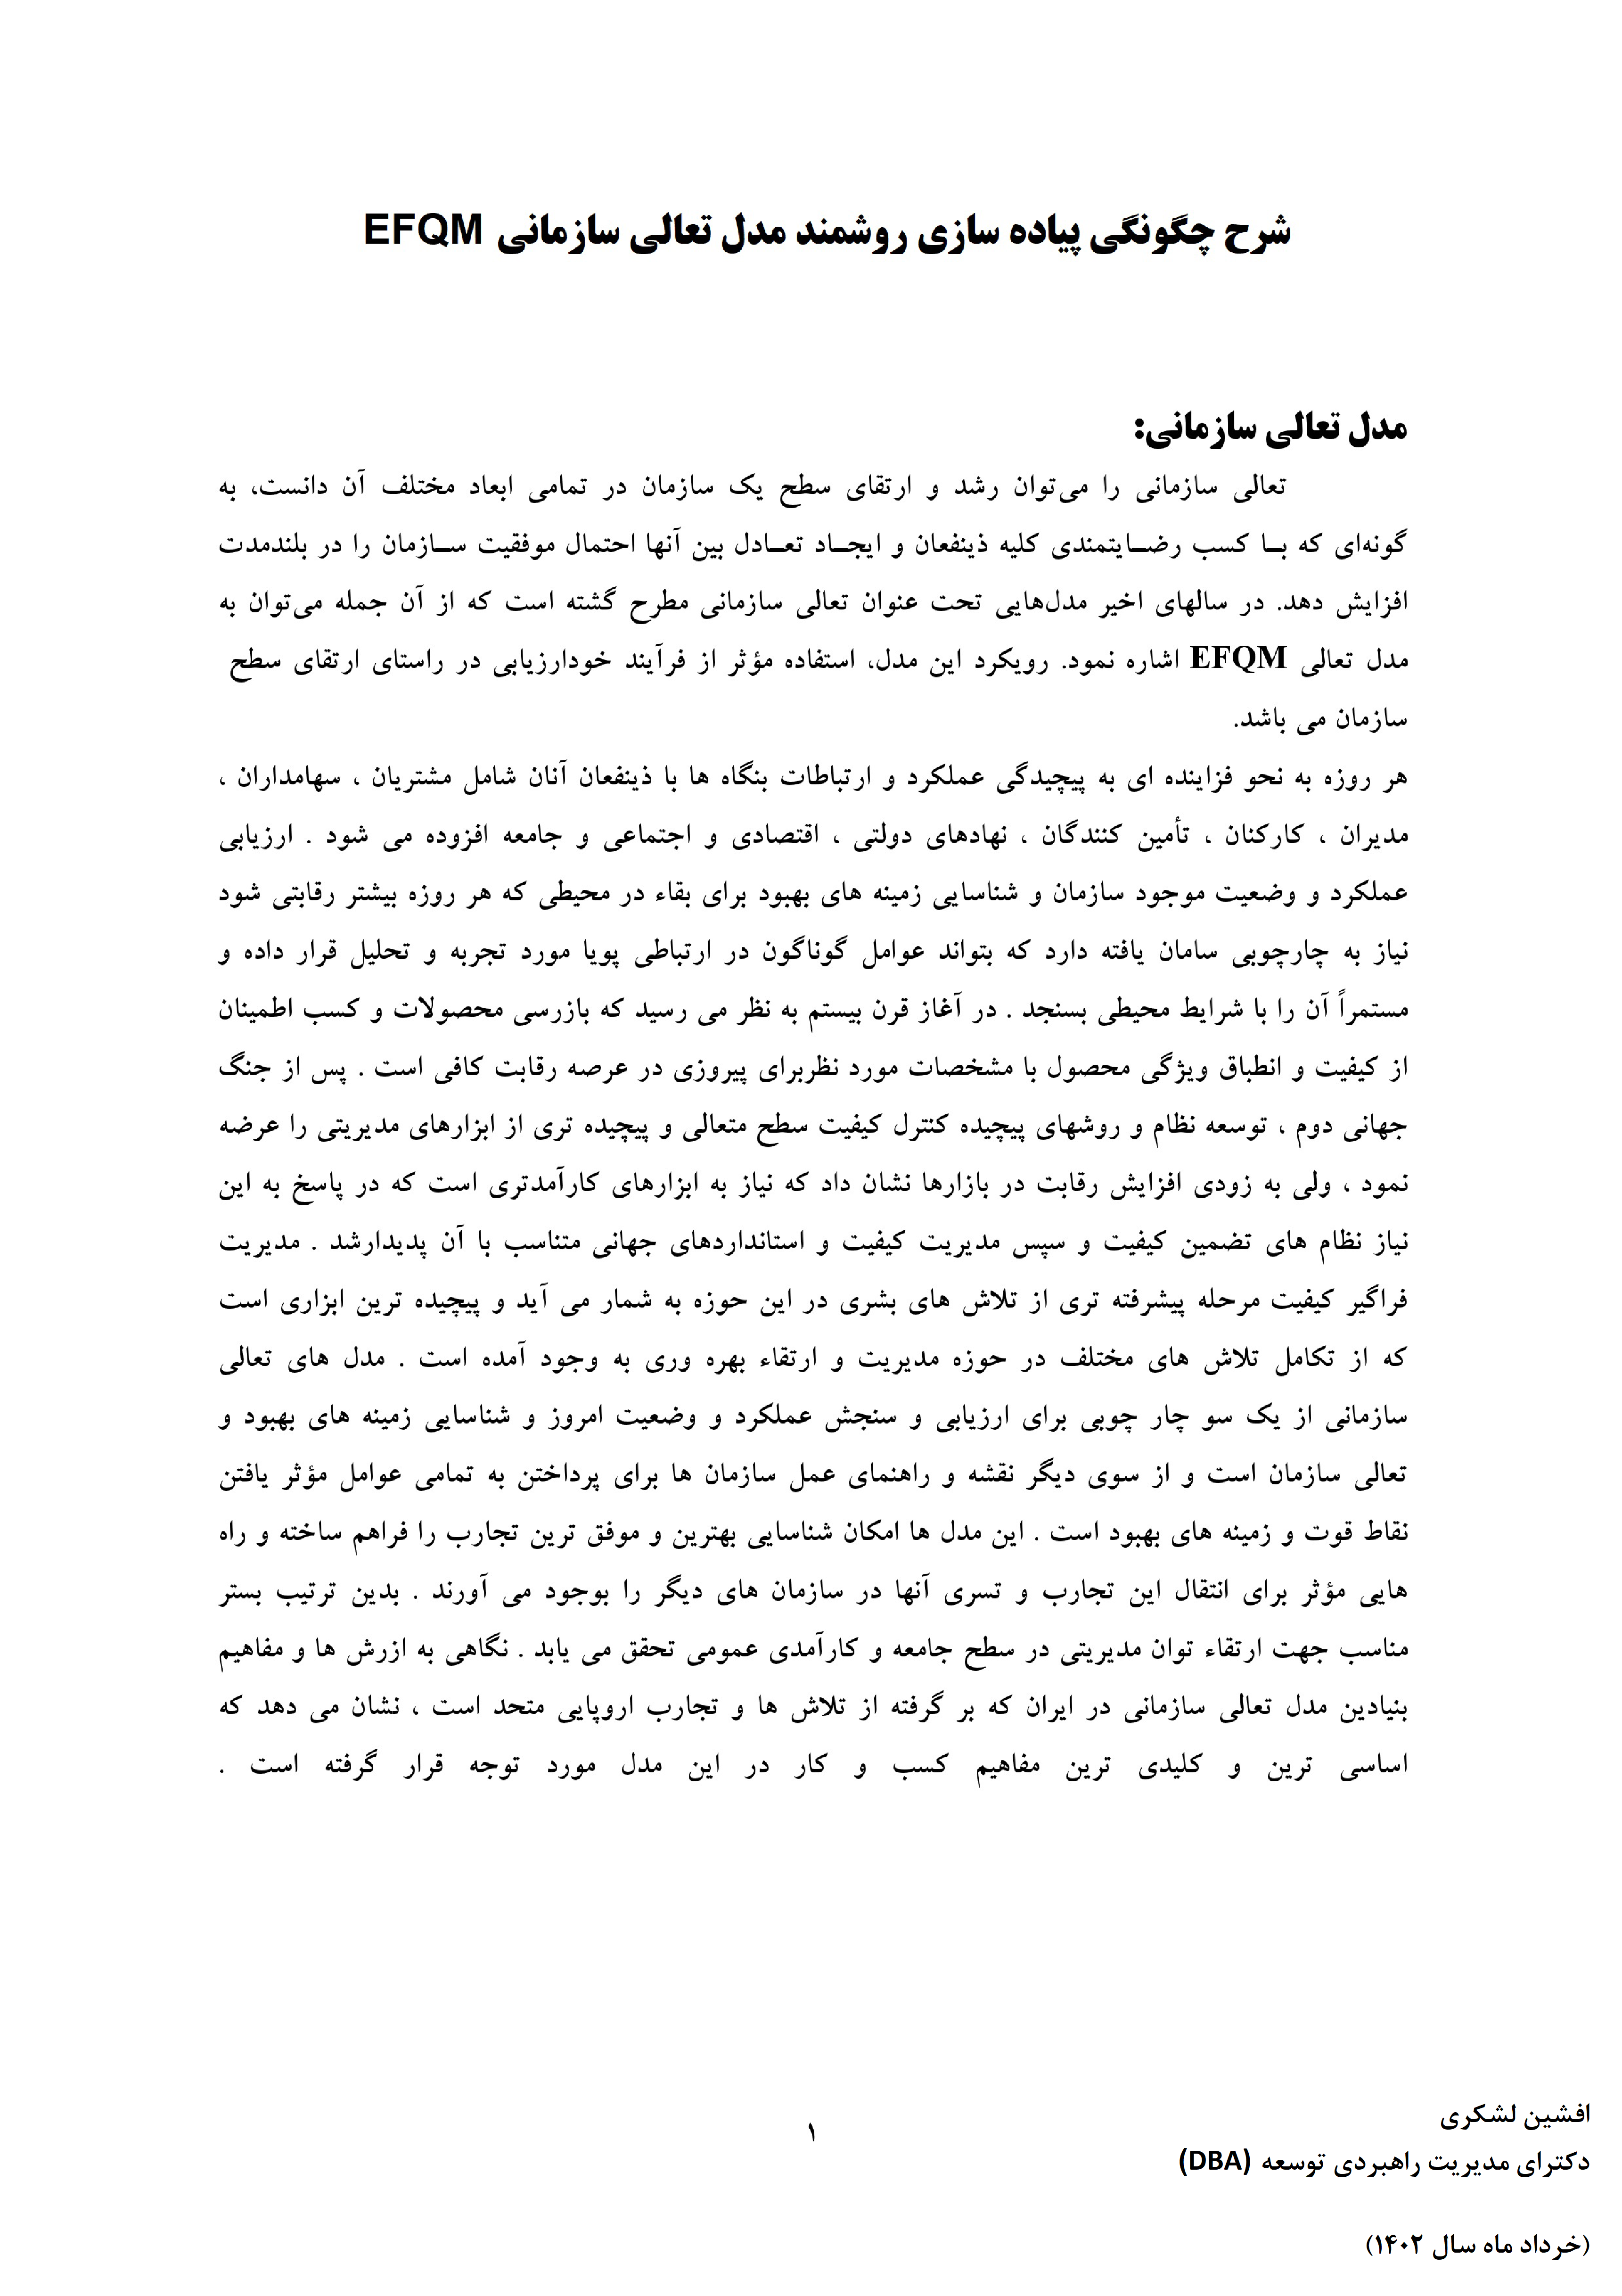 شرح چگونگی پیاده سازی روشمند مدل تعالی سازمانی EFQM
مدل تعالی سازمانی:
تعالی سازمانی را می‌توان رشد و ارتقای سطح یک سازمان در تمامی ابعاد مختلف آن دانست، به
گونه‌ای که بــا کسب رضــایتمندی کلیه ذینفعان و ایجــاد تعــادل بین آنها احتمال موفقیت ســازمان را در بلندمدت
افزایش دهد. در سالهای اخیر مدل‌هایی تحت عنوان تعالی سازمانی مطرح گشته است که از آن جمله می‌توان به
مدل تعالی EFQM اشاره نمود. رویکرد این مدل، استفاده مؤثر از فرآیند خودارزیابی در راستای ارتقای سطح
سازمان می باشد.
هر روزه به نحو فزاینده ای به پیچیدگی عملکرد و ارتباطات بنگاه ها با ذینفعان آنان شامل مشتریان ، سهامداران ،
مدیران ، کارکنان ، تأمین کنندگان ، نهادهای دولتی ، اقتصادی و اجتماعی و جامعه افزوده می شود . ارزیابی
عملکرد و وضعیت موجود سازمان و شناسایی زمینه های بهبود برای بقاء در محیطی که هر روزه بیشتر رقابتی شود
نیاز به چارچوبی سامان یافته دارد که بتواند عوامل گوناگون در ارتباطی پویا مورد تجربه و تحلیل قرار داده و
مستمراً آن را با شرایط محیطی بسنجد . در آغاز قرن بیستم به نظر می رسید که بازرسی محصولات و کسب اطمینان
از کیفیت و انطباق ویژگی محصول با مشخصات مورد نظربرای پیروزی در عرصه رقابت کافی است . پس از جنگ
جهانی دوم ، توسعه نظام و روشهای پیچیده کنترل کیفیت سطح متعالی و پیچیده تری از ابزارهای مدیریتی را عرضه
نمود ، ولی به زودی افزایش رقابت در بازارها نشان داد که نیاز به ابزارهای کارآمدتری است که در پاسخ به این
نیاز نظام های تضمین کیفیت و سپس مدیریت کیفیت و استانداردهای جهانی متناسب با آن پدیدارشد . مدیریت
فراگیر کیفیت مرحله پیشرفته تری از تلاش های بشری در این حوزه به شمار می آید و پیچیده ترین ابزاری است
که از تکامل تلاش های مختلف در حوزه مدیریت و ارتقاء بهره وری به وجود آمده است . مدل های تعالی
سازمانی از یک سو چار چوبی برای ارزیابی و سنجش عملکرد و وضعیت امروز و شناسایی زمینه های بهبود و
تعالی سازمان است و از سوی دیگر نقشه و راهنمای عمل سازمان ها برای پرداختن به تمامی عوامل مؤثر یافتن
نقاط قوت و زمینه های بهبود است . این مدل ها امکان شناسایی بهترین و موفق ترین تجارب را فراهم ساخته و راه
هایی مؤثر برای انتقال این تجارب و تسری آنها در سازمان های دیگر را بوجود می آورند . بدین ترتیب بستر
مناسب جهت ارتقاء توان مدیریتی در سطح جامعه و کارآمدی عمومی تحقق می یابد . نگاهی به ازرش ها و مفاهیم
بنیادین مدل تعالی سازمانی در ایران که بر گرفته از تلاش ها و تجارب اروپایی متحد است ، نشان می دهد که
اساسی ترین و کلیدی ترین مفاهیم کسب و کار در این مدل مورد توجه قرار گرفته است .
افشین لشکری
۱
دکترای مدیریت راهبردی توسعه (DBA)
(خرداد ماه سال ۱۴۰۲)